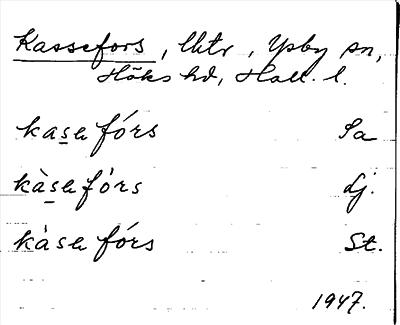 Kassefors, lktr, Ysby sn,
Höks hd, Hall. l.
kase fórs Sa
kàse fòrs Lj.
kàse fórs St.
1947.